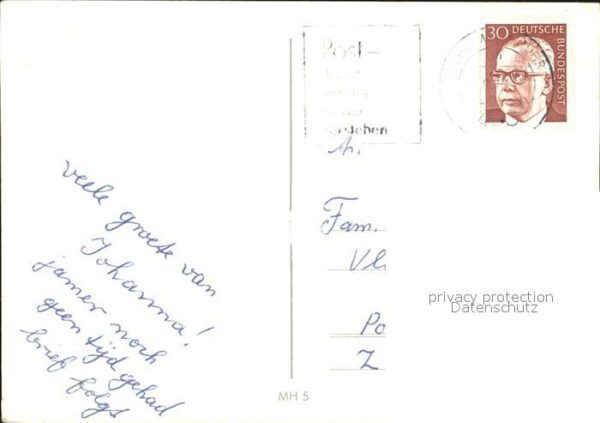 Veele groete van
Johanna!
jamer noch
geen tijd gehad
brief folgt
Post-
verstehen
30 DEUTSCHE
BUNDESPOST
An.
Fam.
Vl
Po
Z
privacy protection
Datenschutz
MH 5